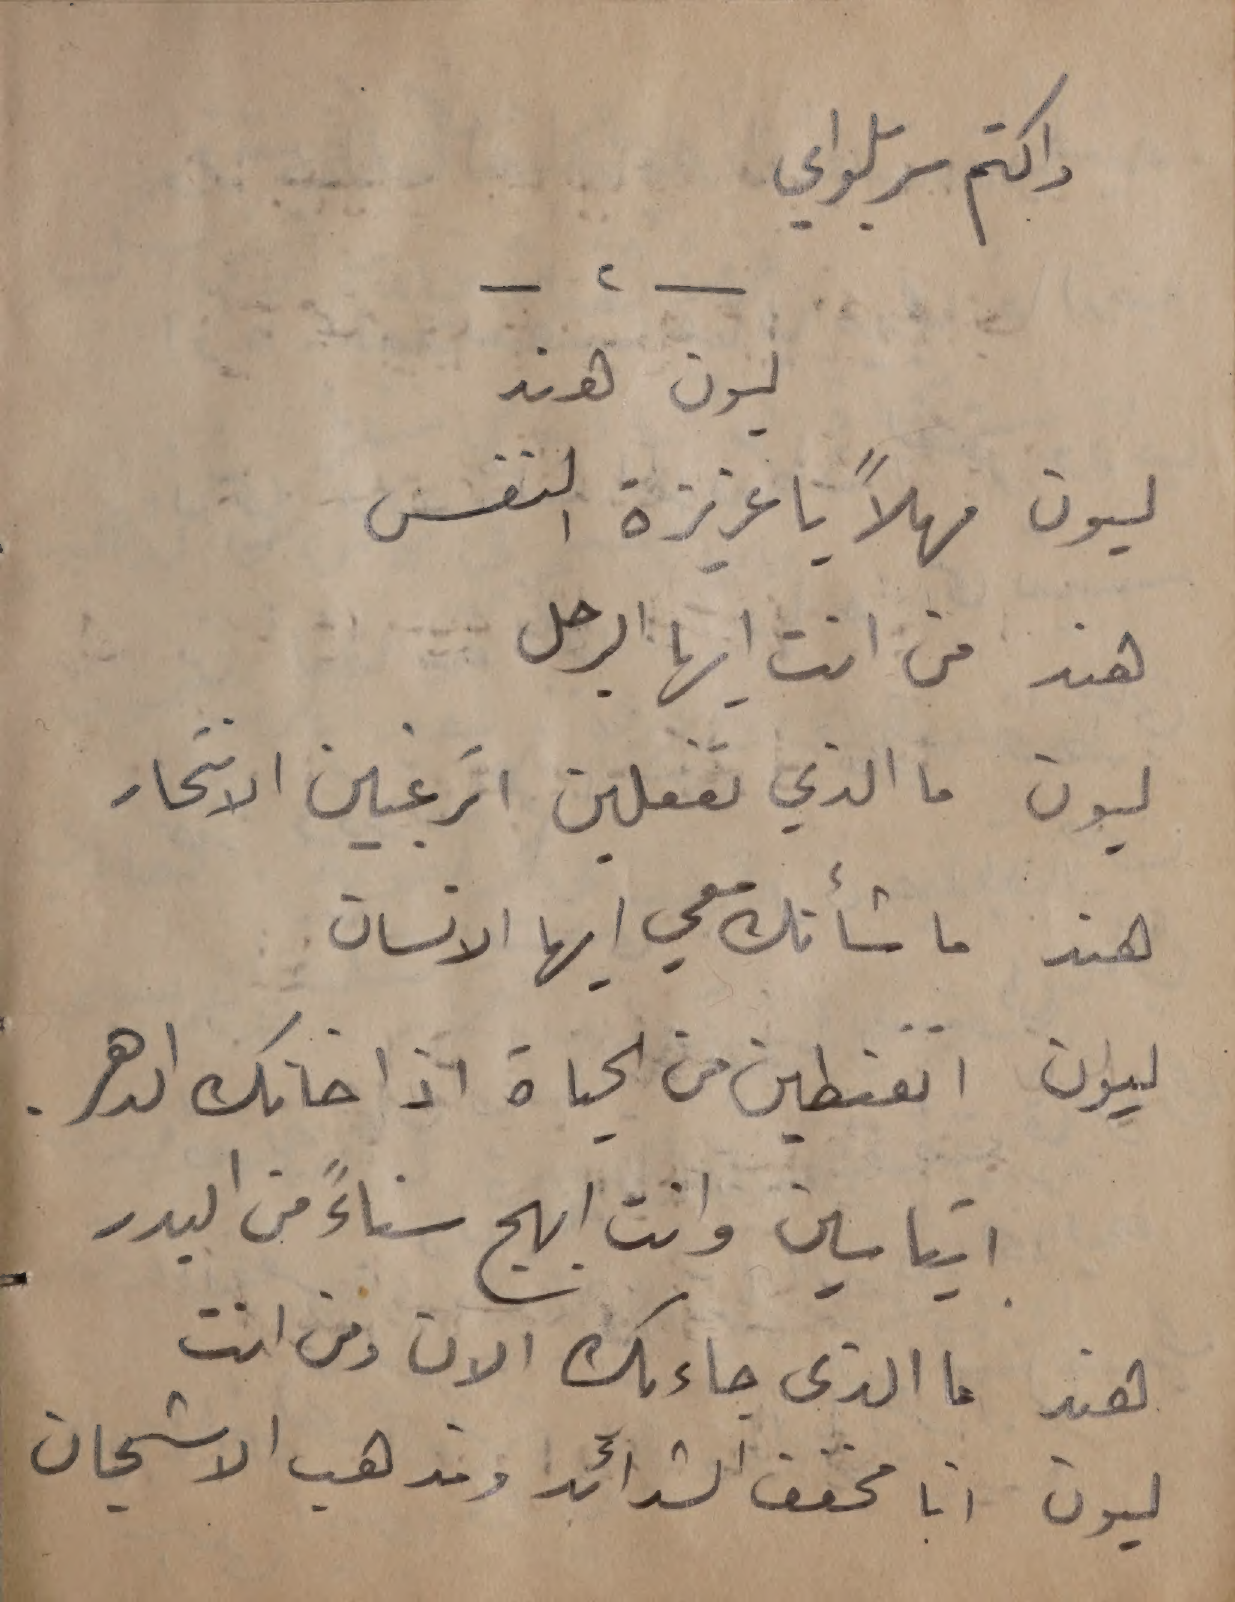 واكتم سر بلواي
— ٢ —
ليون هند
ليون مهلاً يا عزيزة النفس
هند من انت ايها الرجل
ليون ما الذي تفعلين اترغبين الانتحار
هند ما شأنك معي ايها الانسان
ليون اتقنطين من الحياة اذا خانك الدهر .
اتيأسين وانت ابهج سناءً من البدر
هند ما الذي جاء بك الان ومن انت
ليون انا مخفف الشدائد ومذهب الاشجان